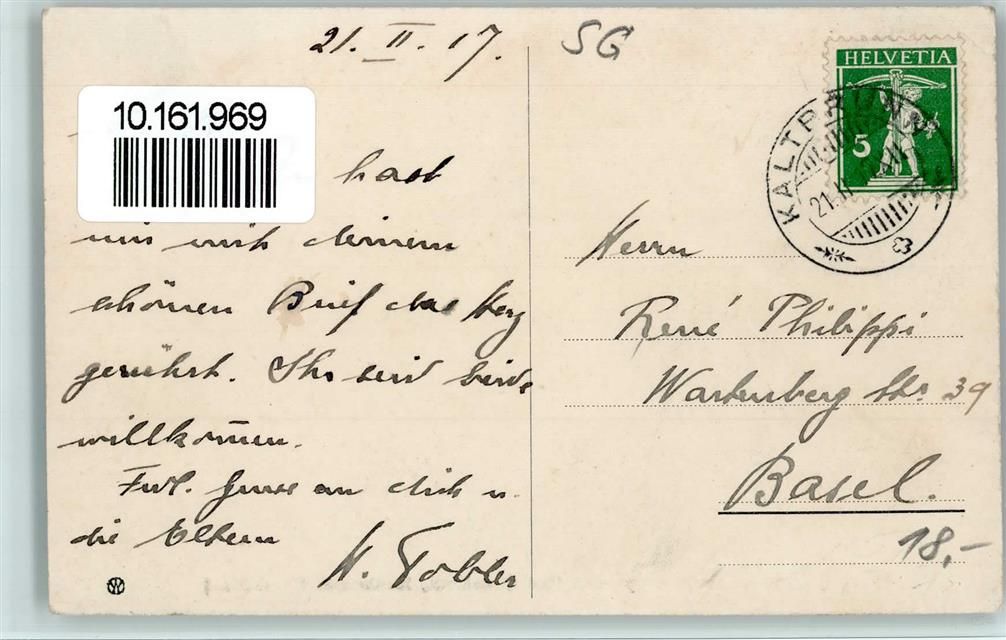 21. II. 17.
SG
10.161.969
HELVETIA
5
KALTBRUNN
21. II
hast
mir mit deinem
schönen Brief das Herz
gerührt. Ihr seid beide
willkom̄en.
Frdl. Grüsse an dich u.
die Eltern
H. Tobler
Herrn
René Philippi
Wartenberg Str. 39
Basel.
18,-